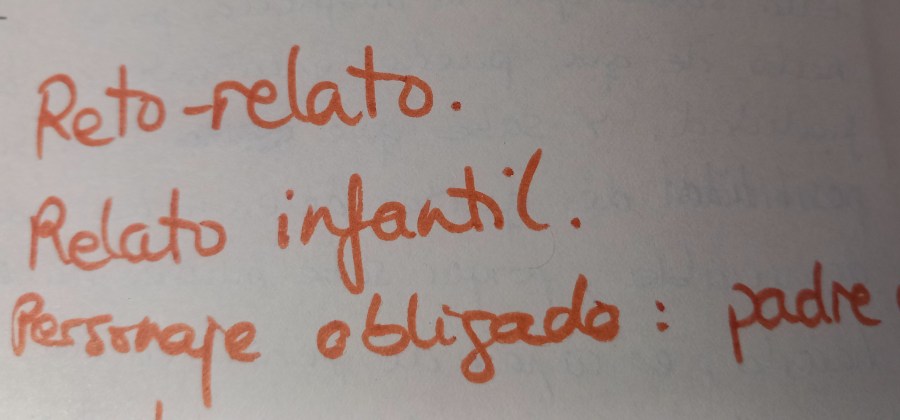 Reto-relato.
Relato infantil.
Personaje obligado: padre